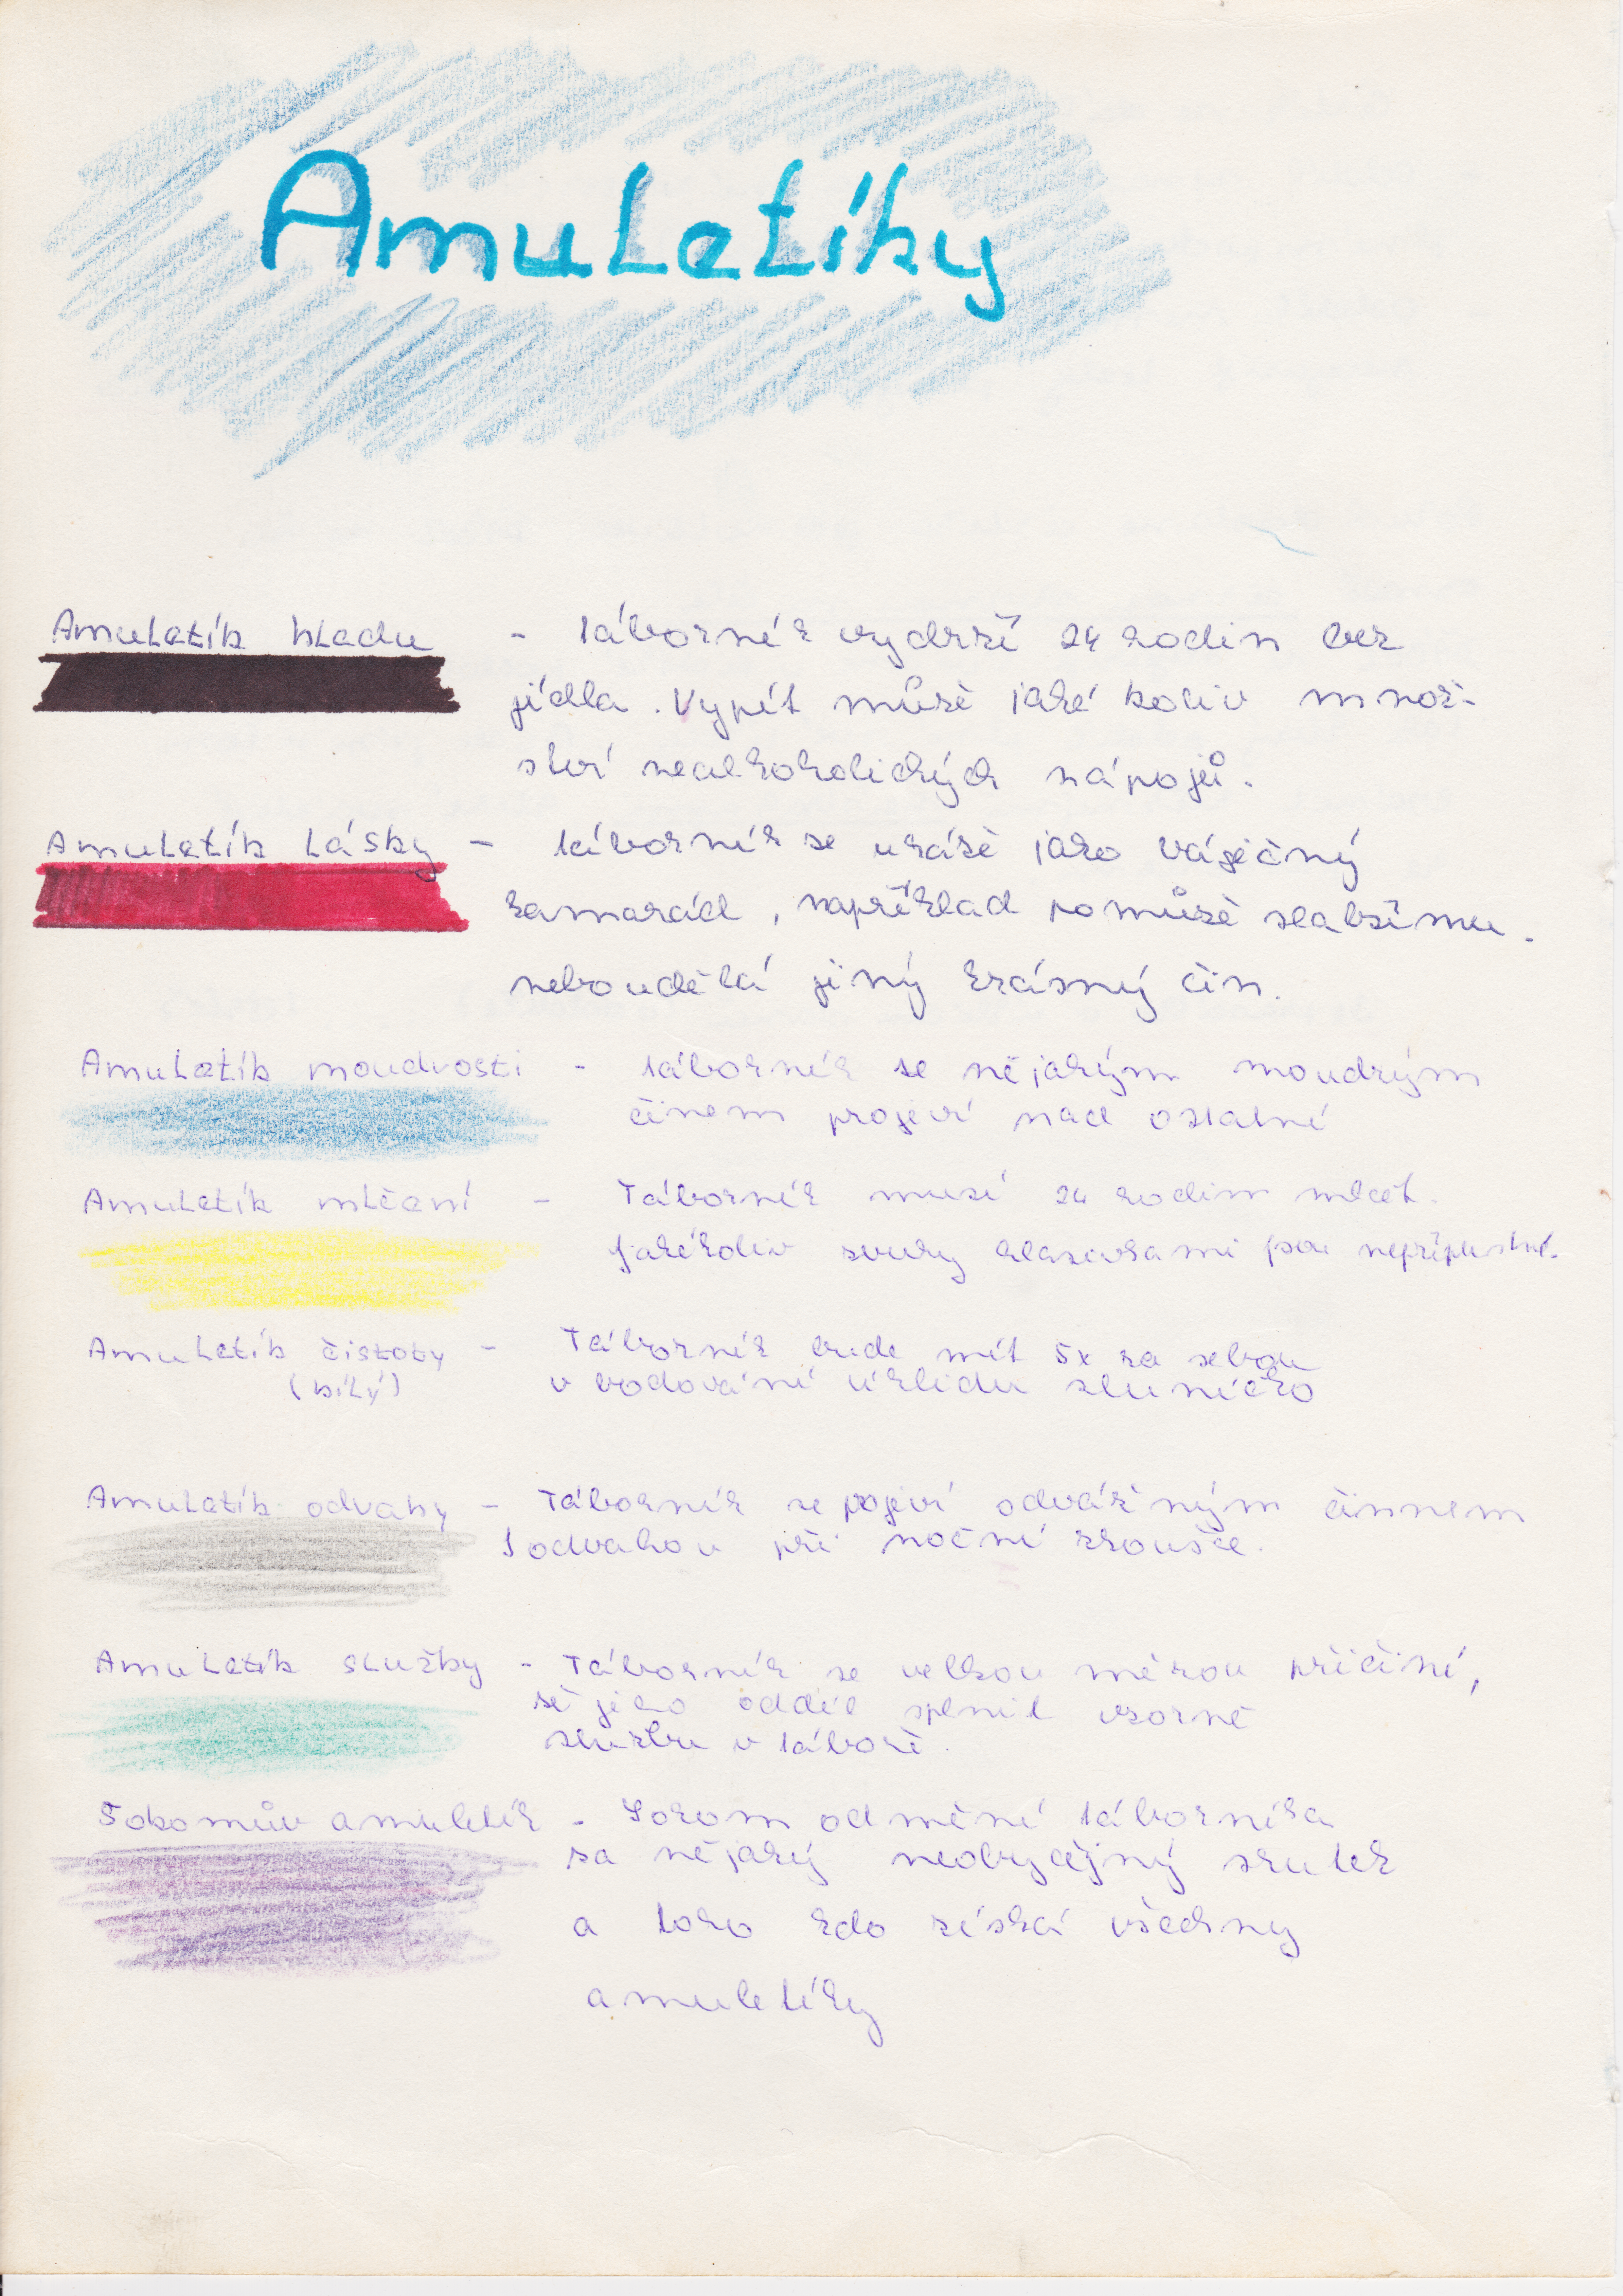 Amuletíky
Amuletík hladu - táborník vydrží 24 hodin bez
jídla. Vypít můžě jaké koliv množ-
ství nealkoholických nápojů.
Amuletík lásky - táborník se ukáže jako báječný
kamarád, například pomůžě slabšímu.
nebo udělá jiný krásný čin.
Amuletík moudrosti - táborník se nějakým moudrým
činem projeví nad ostatní
Amuletík mlčení - Táborník musí 24 hodin mlčet.
Jakékoliv zvuky hlasivkami jsou nepřípustné.
Amuletík čistoty - Táborník bude mít 5x za sebou
(bílý) v bodování úklidu sluníčko
Amuletík odvahy - Táborník se pojeví odvážným činnem
odvahou při noční zkoušce.
Amuletík služby - Táborník se velkou mérou přičiní,
žě jeho oddíl splnil vzorně
službu v táboře.
Tokomův amuletík - Tokom odmění táborníka
za nějaký neobyčejný skutek
a toho kdo získá všechny
amuletíky